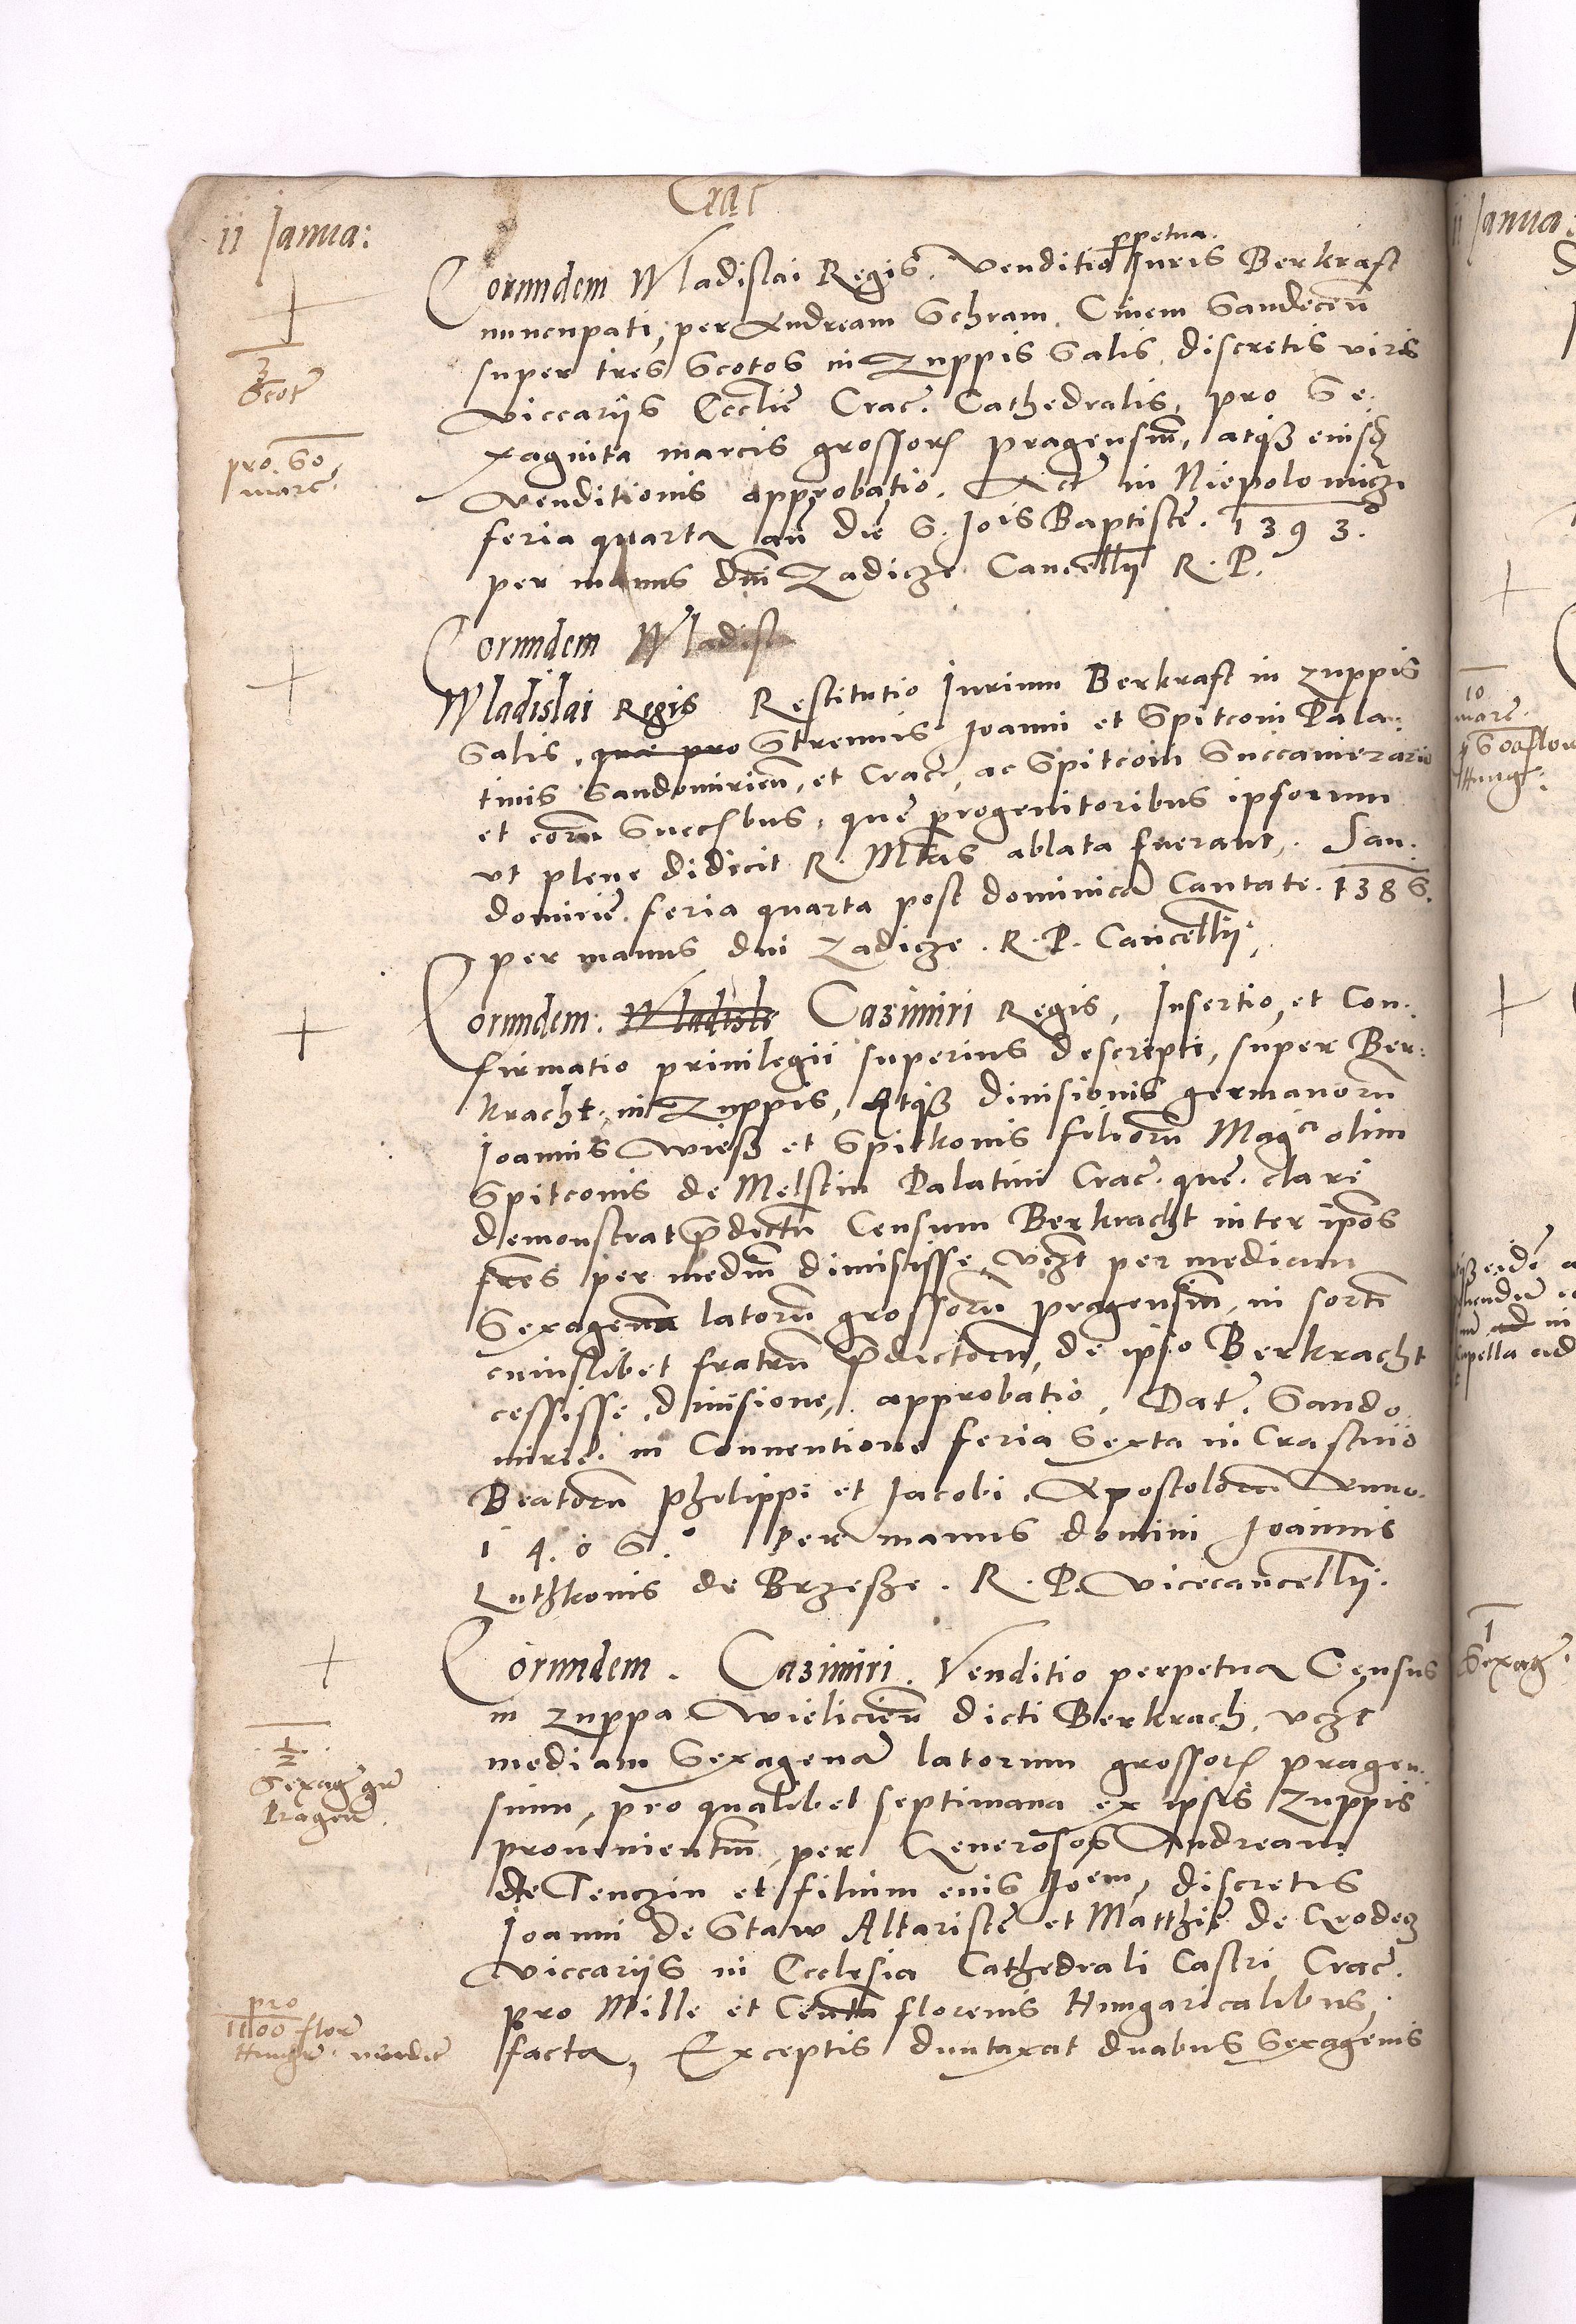 Crac
11 Janua:
Eorundem Wladislai Regis. Venditio perpetua Juris Berkraft
nuncupati, per Andream Schram, Civem Sandecen
super tres Scotos in Zuppis Salis, discretis viris
viccariis Ecclie Crac. Cathedralis, pro Se
xaginta marcis grossor pragensium, atque eiusd
venditionis approbatio. Act in Niepolomicze
feria quarta an die S. Jois Baptiste. 1393.
per manus dni Zadicze Cancellii R. P.
3
Scot
pro 60
marc.
Eorundem Wladisl
Wladislai Regis Restitutio Jurium Berkraft in zuppis
Salis, que pro Strenuis Joanni et Spitconi Pala:
tinis Sandomirien, et Crac, ac Spitconi Succamerario
et eorum Succsbus, que progenitoribus ipsorum
ut plene didicit R. Mtas ablata fuerant, San:
domirie. feria quarta post dominica Cantate. 1386.
per manus dni Zadicze. R. P. Cancellii.
Eorundem. Wladisli Casimiri Regis, Insertio, et Con:
firmatio privilegii superius descripti, super Ber:
kracht, in Zuppis, Atque divisionis germanorum
Joannis Wiesz et Spitkonis filiorum Magci olim
Spitconis de Melstin Palatini Crac. que clare
demonstrat predictum Censum Berkracht inter ipsos
fres per medium divisisse, vczt per mediam
Sexagenam latorum grossorum pragensium, in sortem
cuiuslibet fratrum predictorum, de ipso Berkracht
cessisse, divisione, approbatio. Dat. Sando
mirie. in Conventione feria Sexta in Crastino
Beatorum Philippi et Jacobi Apostolorum Anno.
1 4. 6 6. Per manus domini Joannis
Luthkonis de Brzesze. R. P. Vicecancellii.
Eorundem. Casimiri. Venditio perpetua Census
in zuppa Wielicien dicti Berkrach, vczt
mediam Sexagena latorum grossor pragen
sium, pro qualibet septimana ex ipsis Zuppis
provenientium, per Generosos Andream
de Tenczin et filium eius Joem, discretis
Joanni de Staw Altariste et Matthie de Grodecz
viccariis in Ecclesia Cathedrali Castri Crac.
pro Mille et Centu florenis Hungaricalibus,
facta, Exceptis duntaxat duabus Sexagenis
1/2
Sexag gr
Pragen.
pro
1100 flor
Hungar. vendit
11 Janua:
10
marc.
Hung:
1
Sexag.